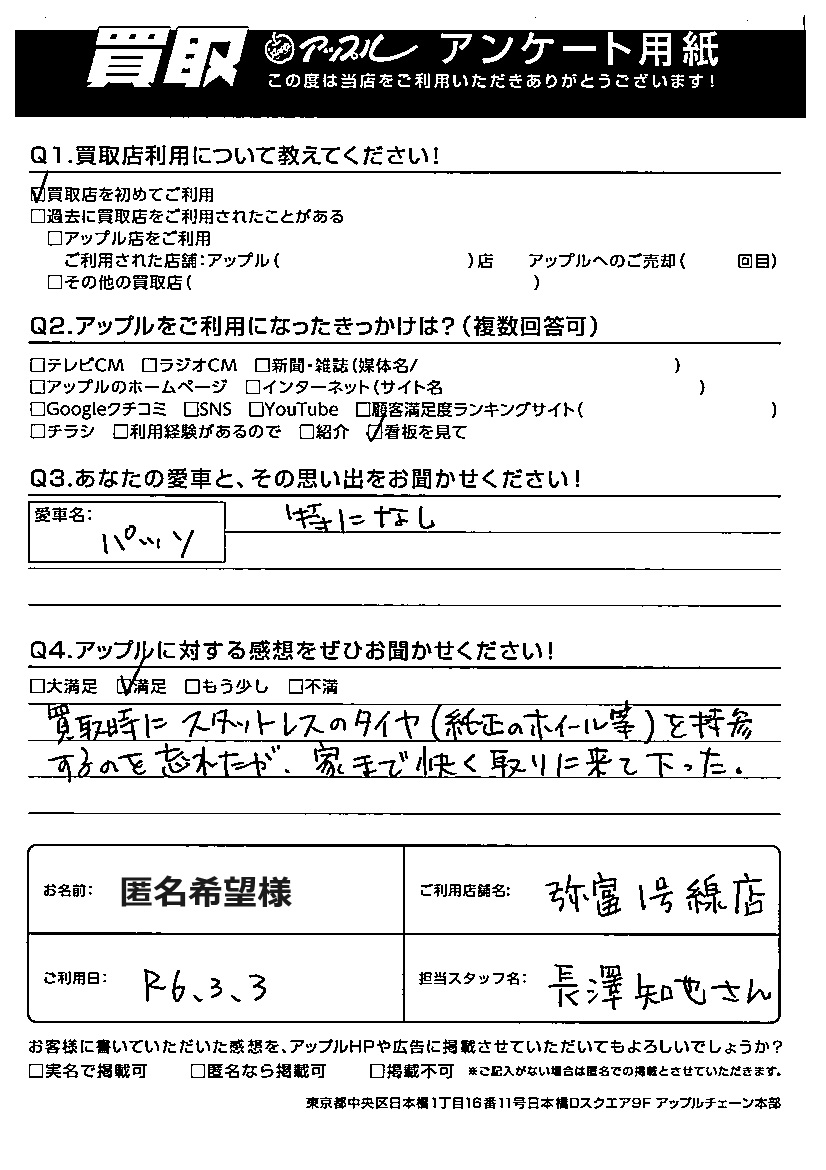 買取 アップル アンケート用紙
この度は当店をご利用いただきありがとうございます!
Q1.買取店利用について教えてください!
☑買取店を初めてご利用
□過去に買取店をご利用されたことがある
□アップル店をご利用
ご利用された店舗:アップル( )店 アップルへのご売却( 回目)
□その他の買取店( )
Q2.アップルをご利用になったきっかけは?(複数回答可)
□テレビCM □ラジオCM □新聞・雑誌(媒体名/ )
□アップルのホームページ □インターネット(サイト名 )
□Googleクチコミ □SNS □YouTube □顧客満足度ランキングサイト( )
□チラシ □利用経験があるので □紹介 ☑看板を見て
Q3.あなたの愛車と、その思い出をお聞かせください!
愛車名: 特になし
パッソ
Q4.アップルに対する感想をぜひお聞かせください!
□大満足 ☑満足 □もう少し □不満
買取時にスタットレスのタイヤ(純正のホイール等)を持参
するのを忘れたが、家まで快く取りに来て下った。
お名前: 匿名希望様 ご利用店舗名: 弥富1号線店
ご利用日: R6、3、3 担当スタッフ名: 長澤知也さん
お客様に書いていただいた感想を、アップルHPや広告に掲載させていただいてもよろしいでしょうか?
□実名で掲載可 □匿名なら掲載可 □掲載不可 ※ご記入がない場合は匿名での掲載とさせていただきます。
東京都中央区日本橋1丁目16番11号日本橋Dスクエア9F アップルチェーン本部